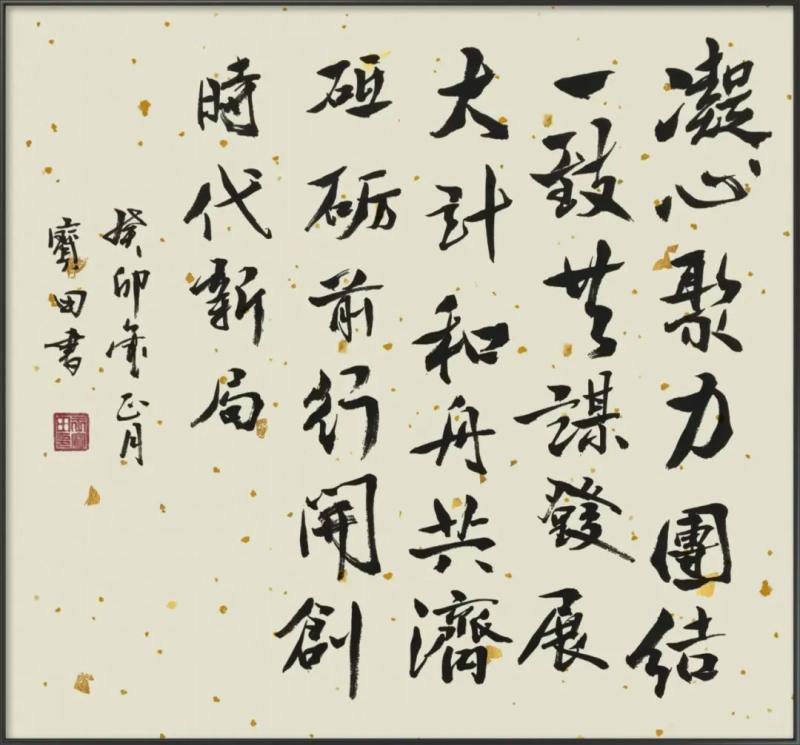 凝心聚力團結
一致共謀發展
大計和舟共濟
砥砺前行開創
時代新局
癸卯年正月
寶田書